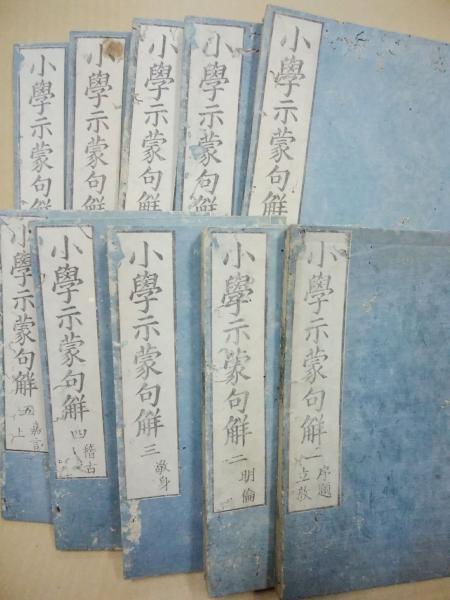 小學示蒙句解
小學示蒙句解
小學示蒙句解
小學示蒙句解
小學示蒙句解
小學示蒙句解 一 序題 立教
小學示蒙句解 二 明倫
小學示蒙句解 三 敬身
小學示蒙句解 四 稽古
小學示蒙句解 五 嘉言 上